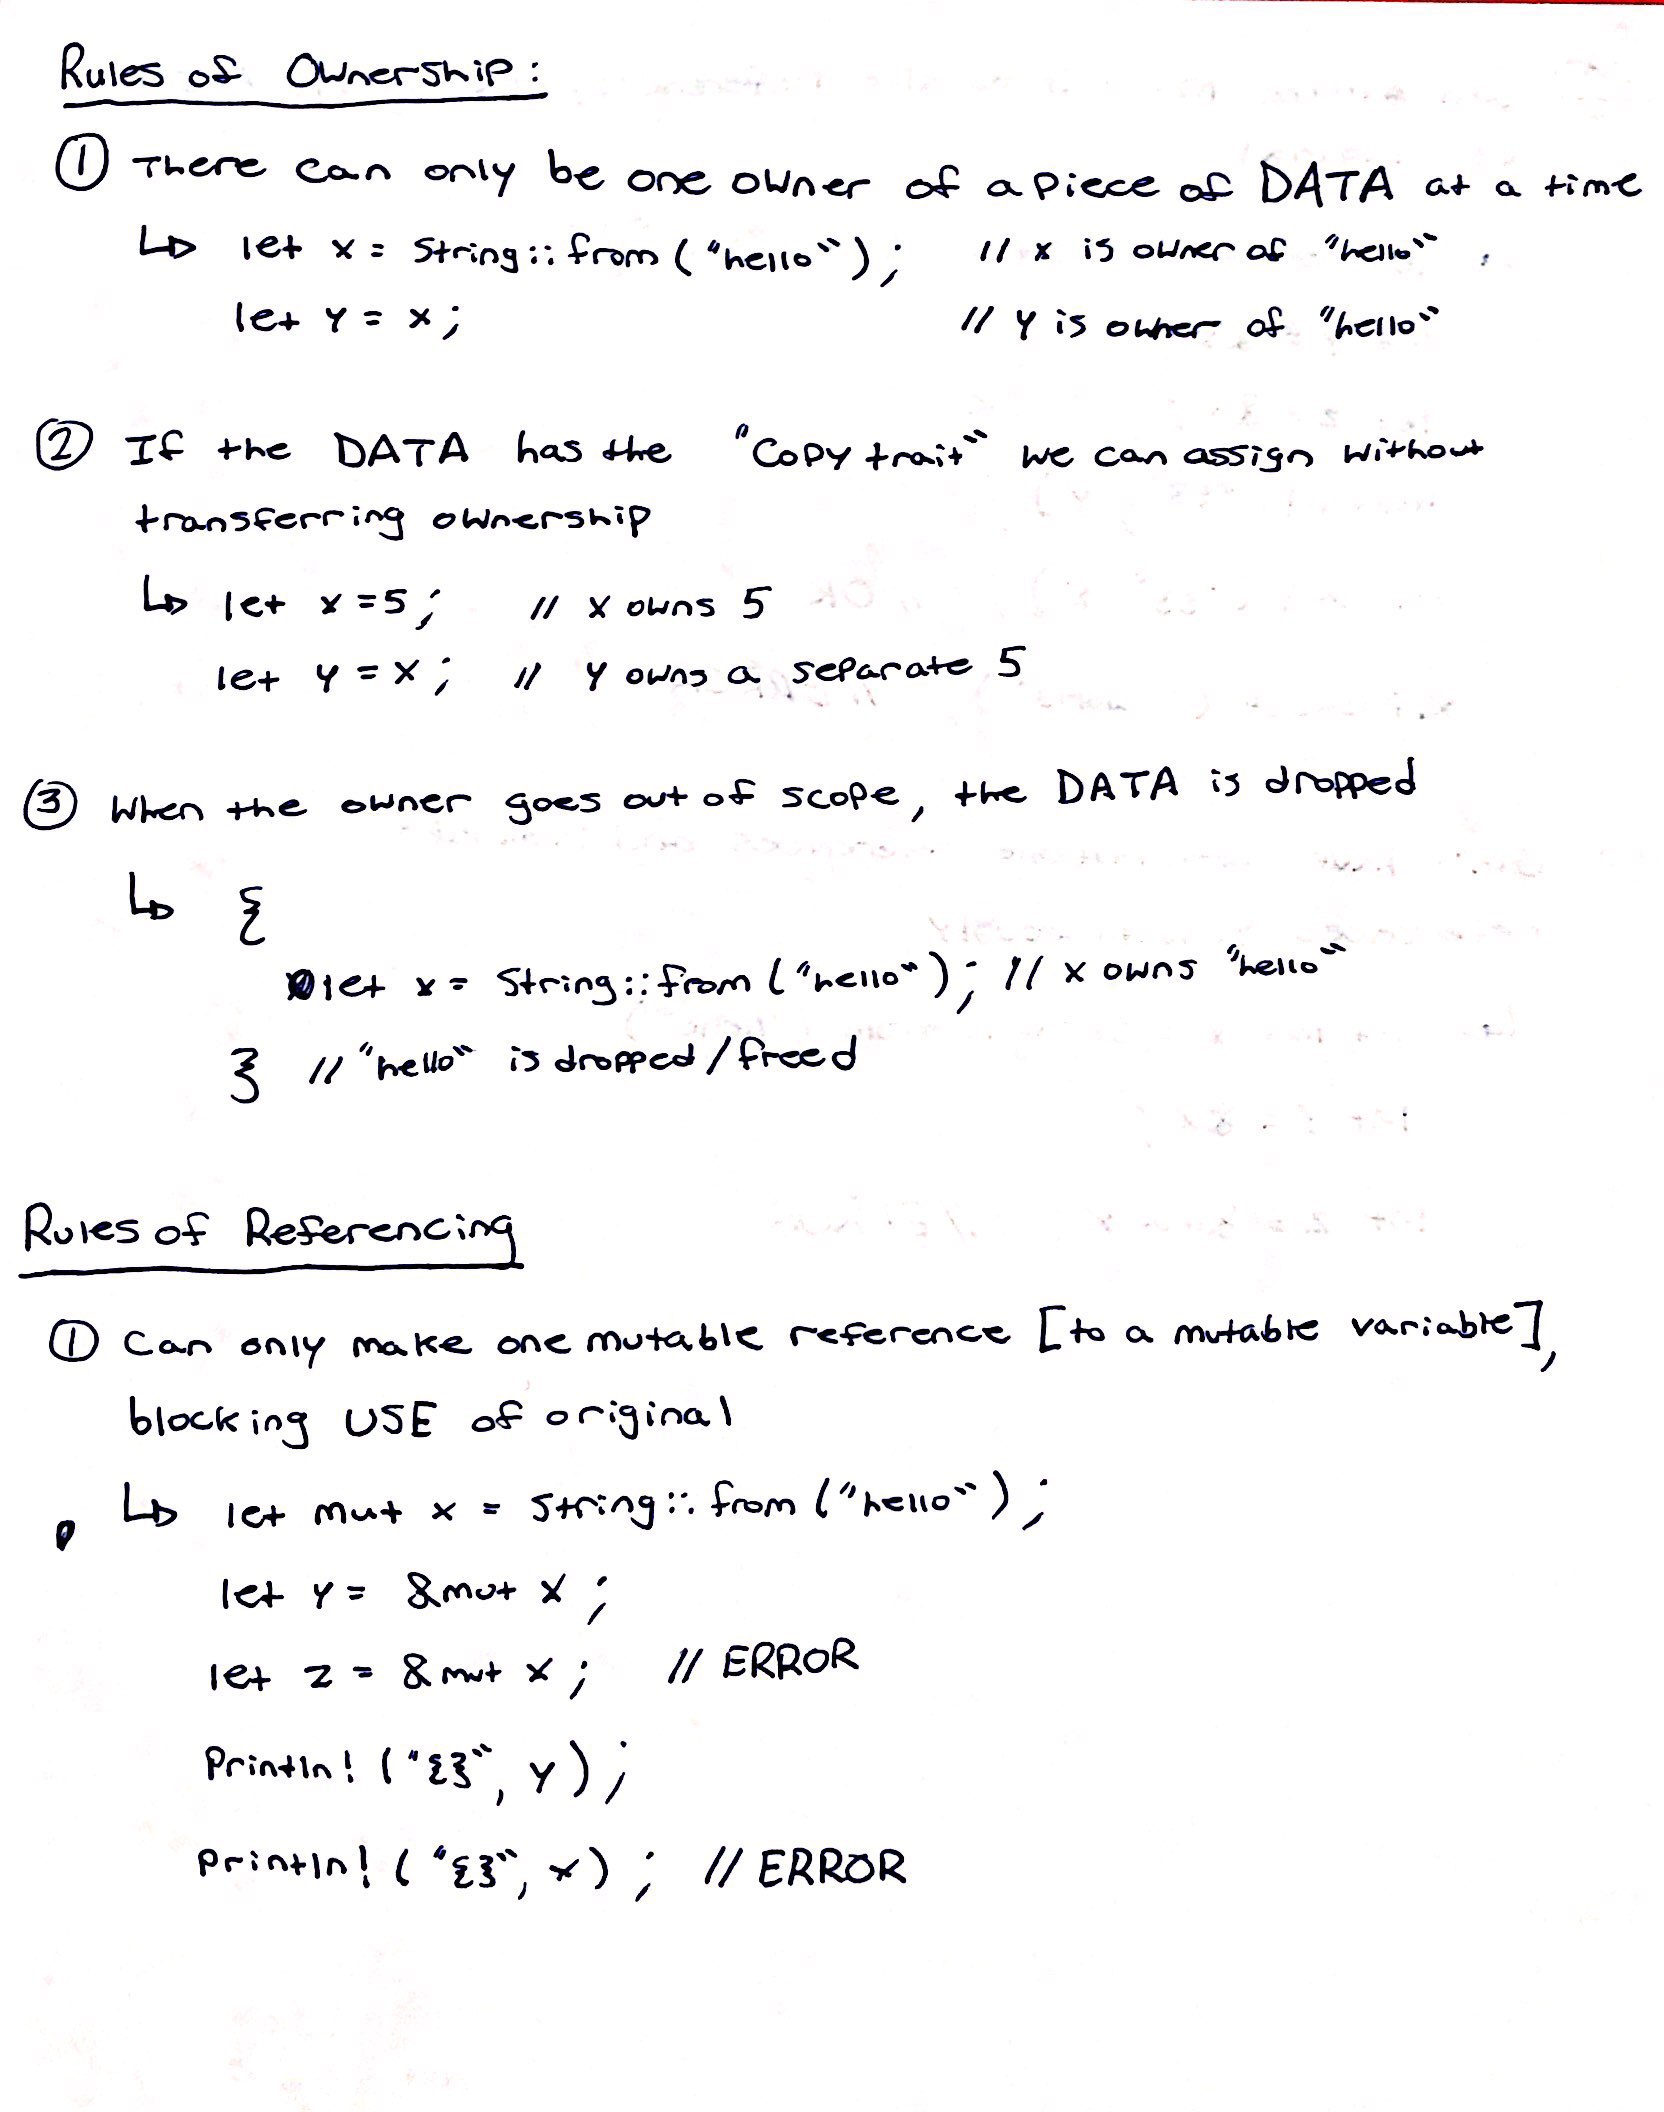 Rules of Ownership:
① There can only be one owner of a piece of DATA at a time
↳ let x = String::from("hello"); // x is owner of "hello"
let y = x; // y is owner of "hello"
② If the DATA has the "Copy trait" we can assign without
transferring ownership
↳ let x = 5; // x owns 5
let y = x; // y owns a separate 5
③ When the owner goes out of scope, the DATA is dropped
↳ {
let x = String::from("hello"); // x owns "hello"
} // "hello" is dropped/freed
Rules of Referencing
① Can only make one mutable reference [to a mutable variable],
blocking USE of original
↳ let mut x = String::from("hello");
let y = &mut x;
let z = &mut x; // ERROR
Println!("{}", y);
Println!("{}", x); // ERROR